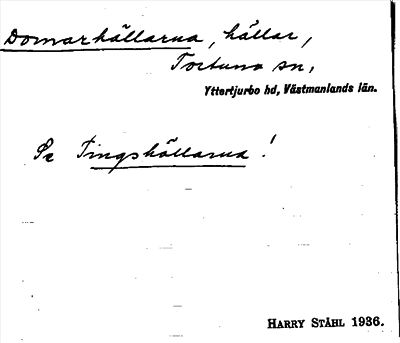 Domarhällarna, hällar,
Tortuna sn,
Yttertjurbo hd, Västmanlands län.
Se Tingshällarna!
HARRY STÅHL 1936.